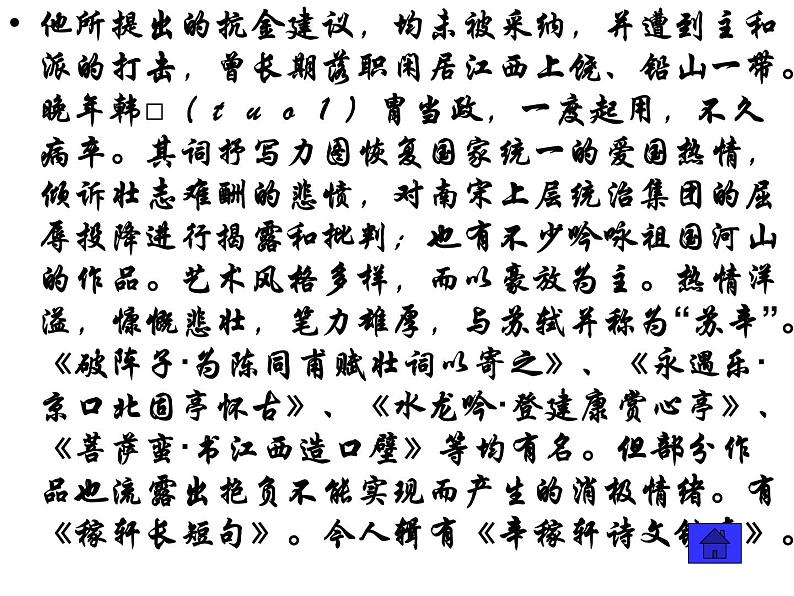 • 他所提出的抗金建议，均未被采纳，并遭到主和
派的打击，曾长期落职闲居江西上饶、铅山一带。
晚年韩□（ｔｕｏ１）胄当政，一度起用，不久
病卒。其词抒写力图恢复国家统一的爱国热情，
倾诉壮志难酬的悲愤，对南宋上层统治集团的屈
辱投降进行揭露和批判；也有不少吟咏祖国河山
的作品。艺术风格多样，而以豪放为主。热情洋
溢，慷慨悲壮，笔力雄厚，与苏轼并称为“苏辛”。
《破阵子·为陈同甫赋壮词以寄之》、《永遇乐·
京口北固亭怀古》、《水龙吟·登建康赏心亭》、
《菩萨蛮·书江西造口壁》等均有名。但部分作
品也流露出抱负不能实现而产生的消极情绪。有
《稼轩长短句》。今人辑有《辛稼轩诗文》。